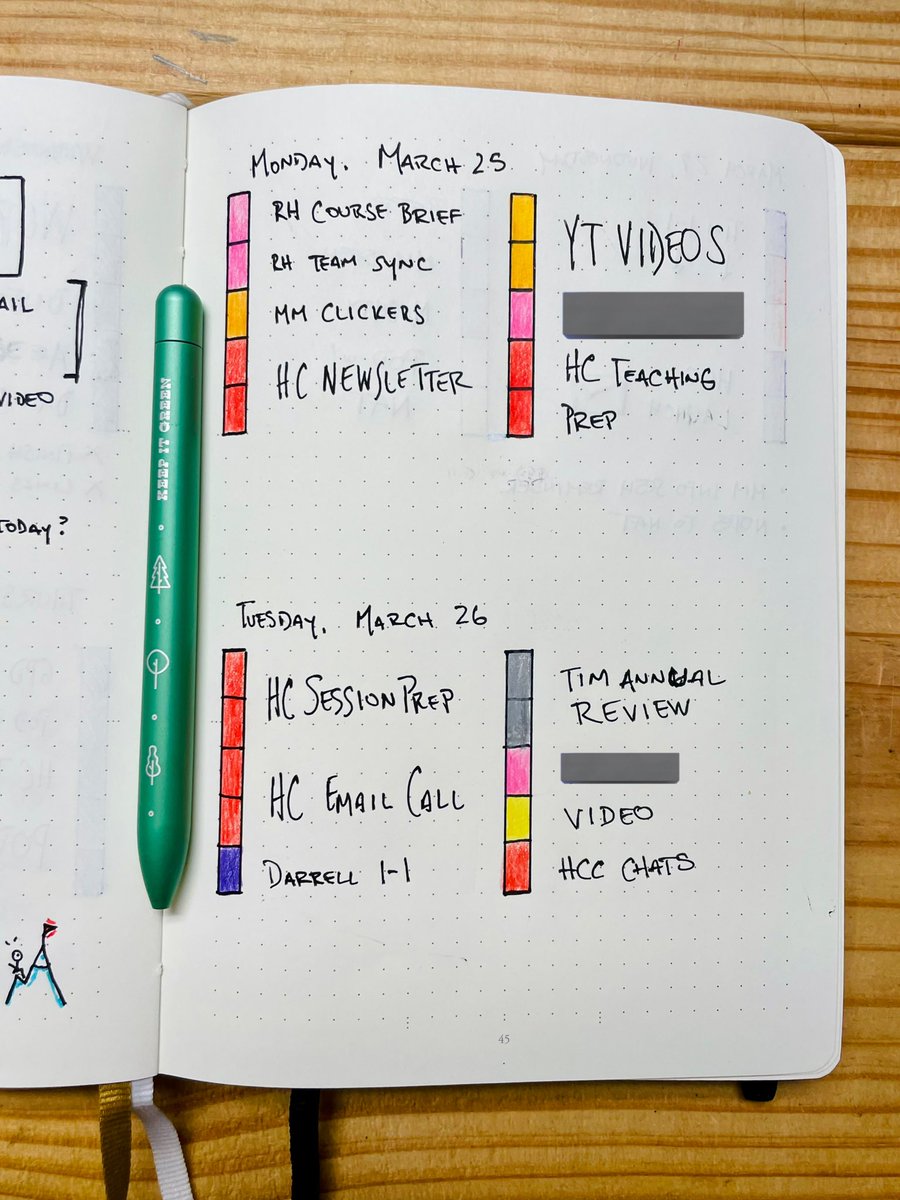 AIL
VIDEO
TODAY?
KEEP IT GREEN
MONDAY, MARCH 25
RH COURSE BRIEF
RH TEAM SYNC
MM CLICKERS
HC NEWSLETTER
YT VIDEOS
HC TEACHING
PREP
TUESDAY, MARCH 26
HC SESSION PREP
HC EMAIL CALL
DARRELL 1-1
TIM ANNUAL
REVIEW
VIDEO
HCC CHATS
45